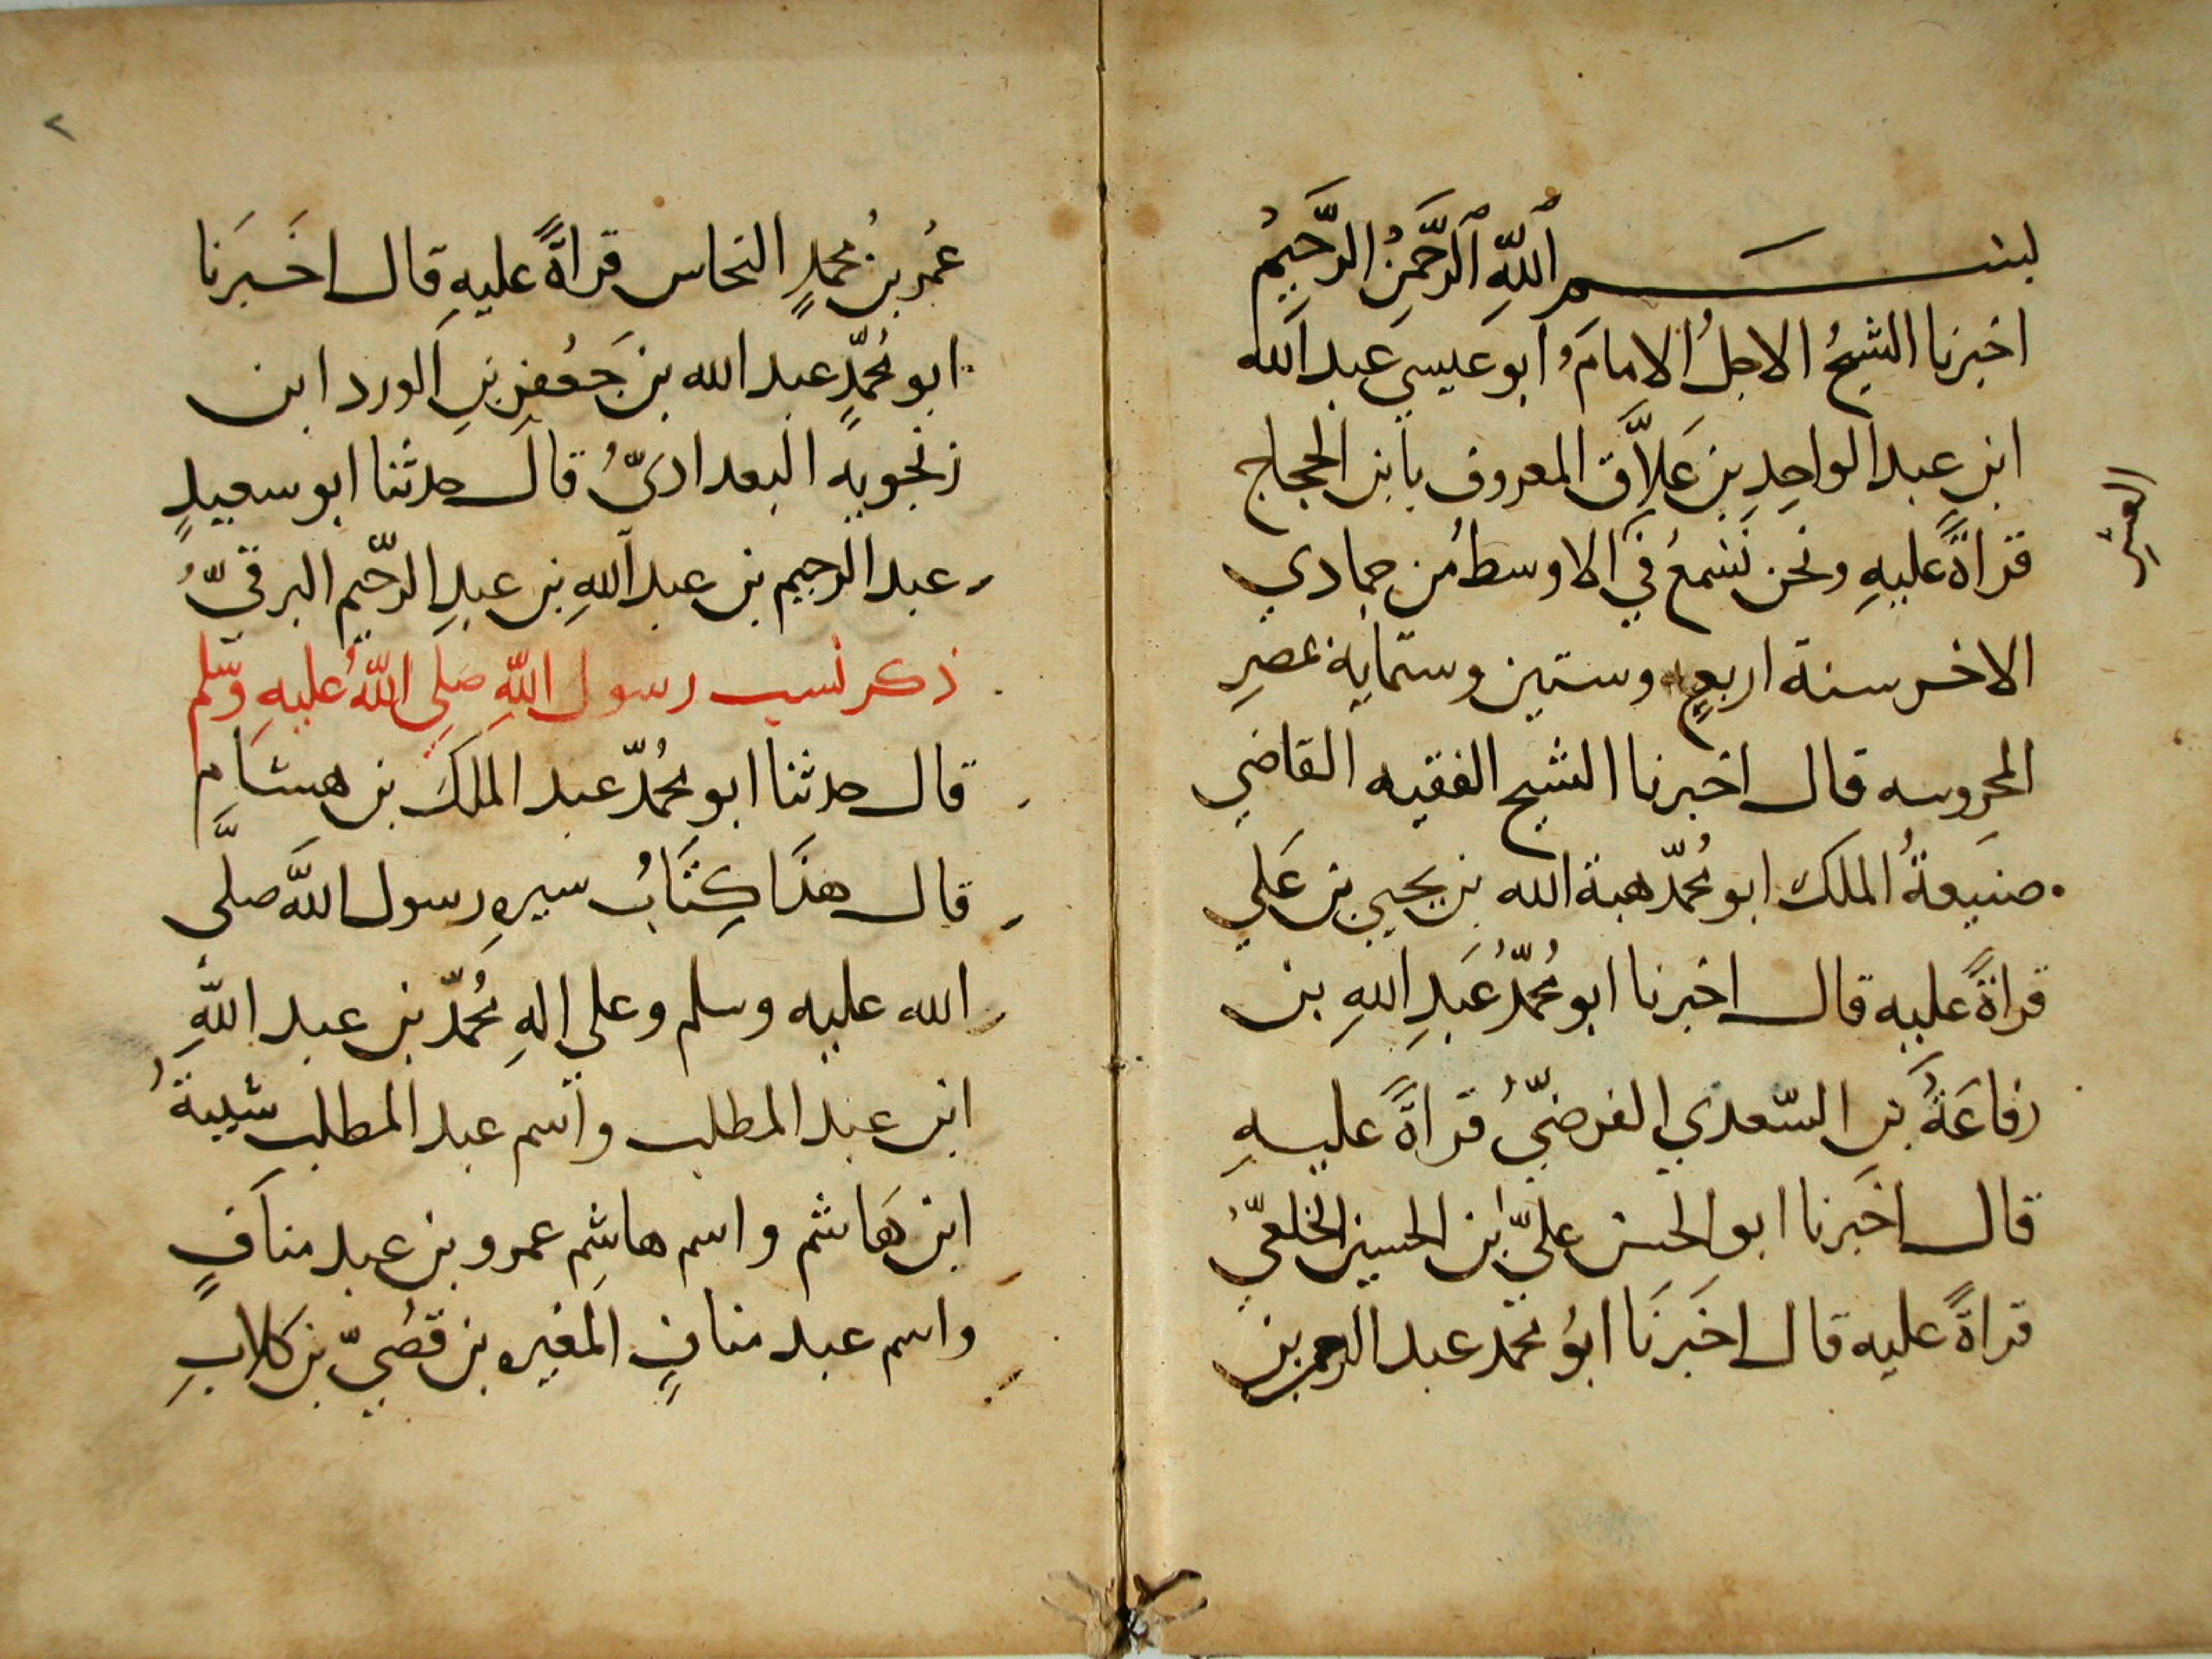 بسم الله الرحمن الرحيم
اخبرنا الشيخ الاجل الامام ابو عيسى عبد الله
ابن عبد الواحد بن علاق المعروف بابن الحجاج
قراة عليه ونحن نسمع في الاوسط من جمادي
العشر
الاخر سنة اربع وستين وستماية بمصر
المحروسه قال اخبرنا الشيخ الفقيه القاضي
صنيعة الملك ابو محمد هبة الله بن يحيى بن علي
قراة عليه قال اخبرنا ابو محمد عبد الله بن
رفاعة بن السعدي الفرضي قراة عليه
قال اخبرنا ابو الحسن علي ابن الحسين الخلعي
قراة عليه قال اخبرنا ابو محمد عبد الرحمن بن
٢
عمر بن محمد النحاس قراة عليه قال اخبرنا
ابو محمد عبد الله بن جعفر بن الورد ابن
زنجويه البغدادي قال حدثنا ابو سعيد
عبد الرحيم بن عبد الله بن عبد الرحيم البرقي
ذكر نسب رسول الله صلى الله عليه وسلم
قال حدثنا ابو محمد عبد الملك بن هشام
قال هذا كتاب سيره رسول الله صلى
الله عليه وسلم وعلي اله محمد بن عبد الله
ابن عبد المطلب واسم عبد المطلب شيبة
ابن هاشم واسم هاشم عمرو بن عبد مناف
واسم عبد مناف المغيره بن قصي بن كلاب